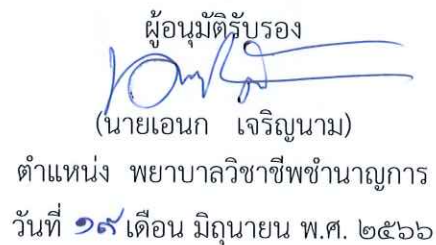 ผู้อนุมัติรับรอง
(นายเอนก เจริญนาม)
ตำแหน่ง พยาบาลวิชาชีพชำนาญการ
วันที่ ๑๙ เดือน มิถุนายน พ.ศ. ๒๕๖๖